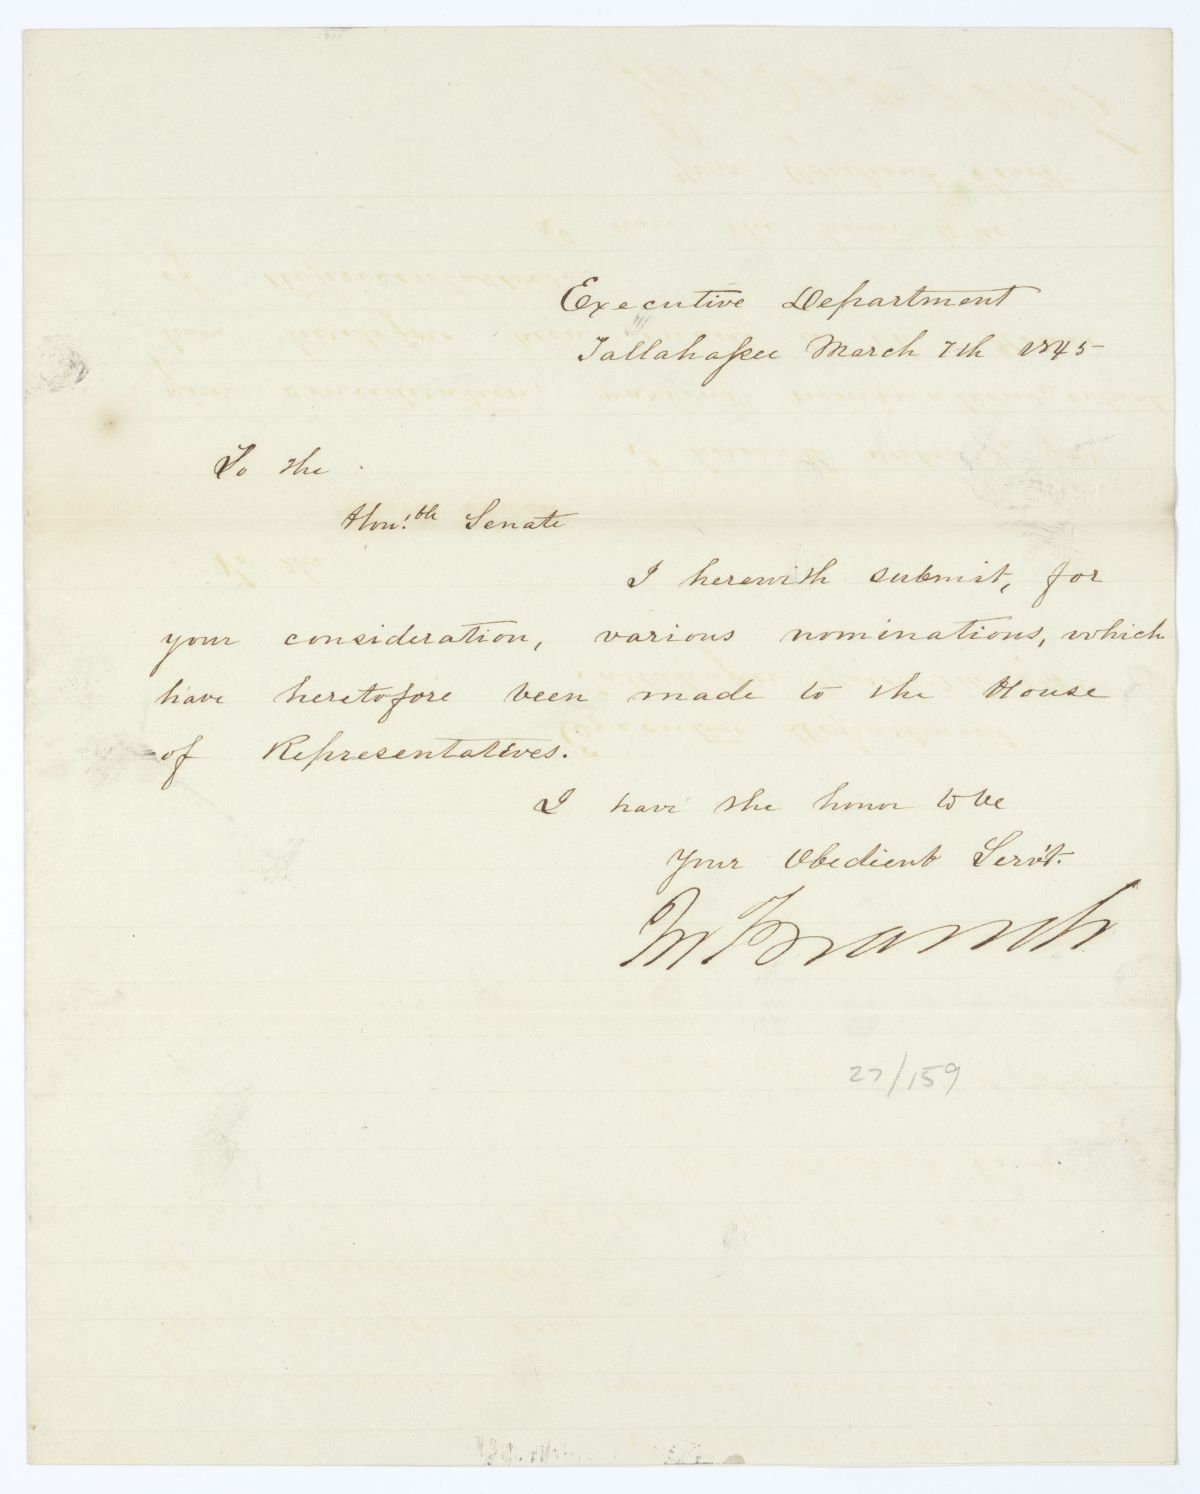 Executive Department
Tallahassee March 7th 1845
To the
Hon:ble Senate
I herewith submit, for
your consideration, various nominations, which
have heretofore been made to the House
of Representatives.
I have the honor to be
Your Obedient Serv't.
Jn Branch
27/159